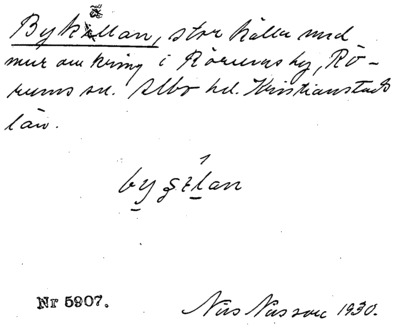 Bykällan, stor källa med
mur omkring i Rörums by, Rö-
rums sn. Albo hd. Kristianstads
län.
Nr 5907.
Nils Nilsson 1930.